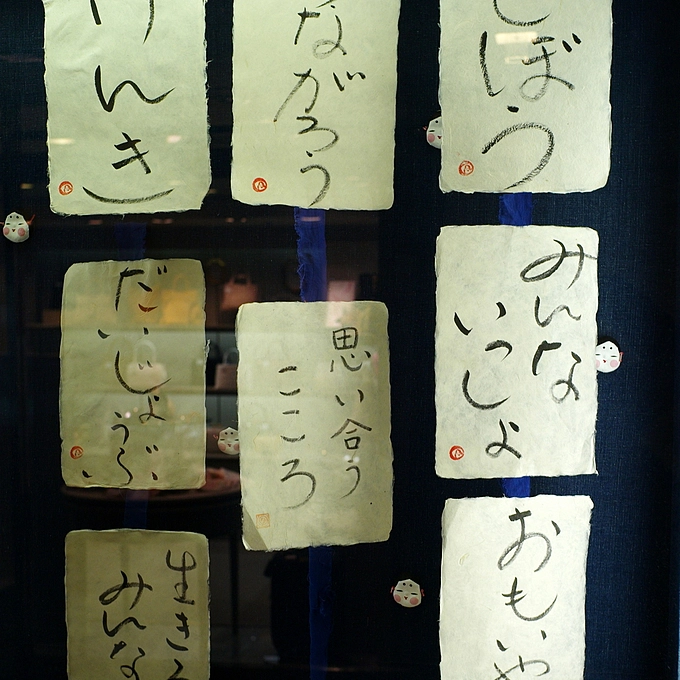 ぼう
みんな
いっしょ
おもいや
ながろう
思い合う
こころ
んき
だいじょうぶ
生き
みんな